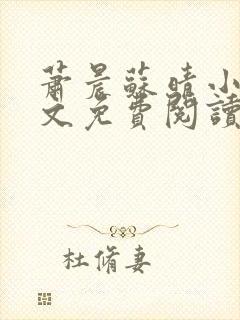 蕭晨蘇晴小
文免費閱讀
杜脩妻